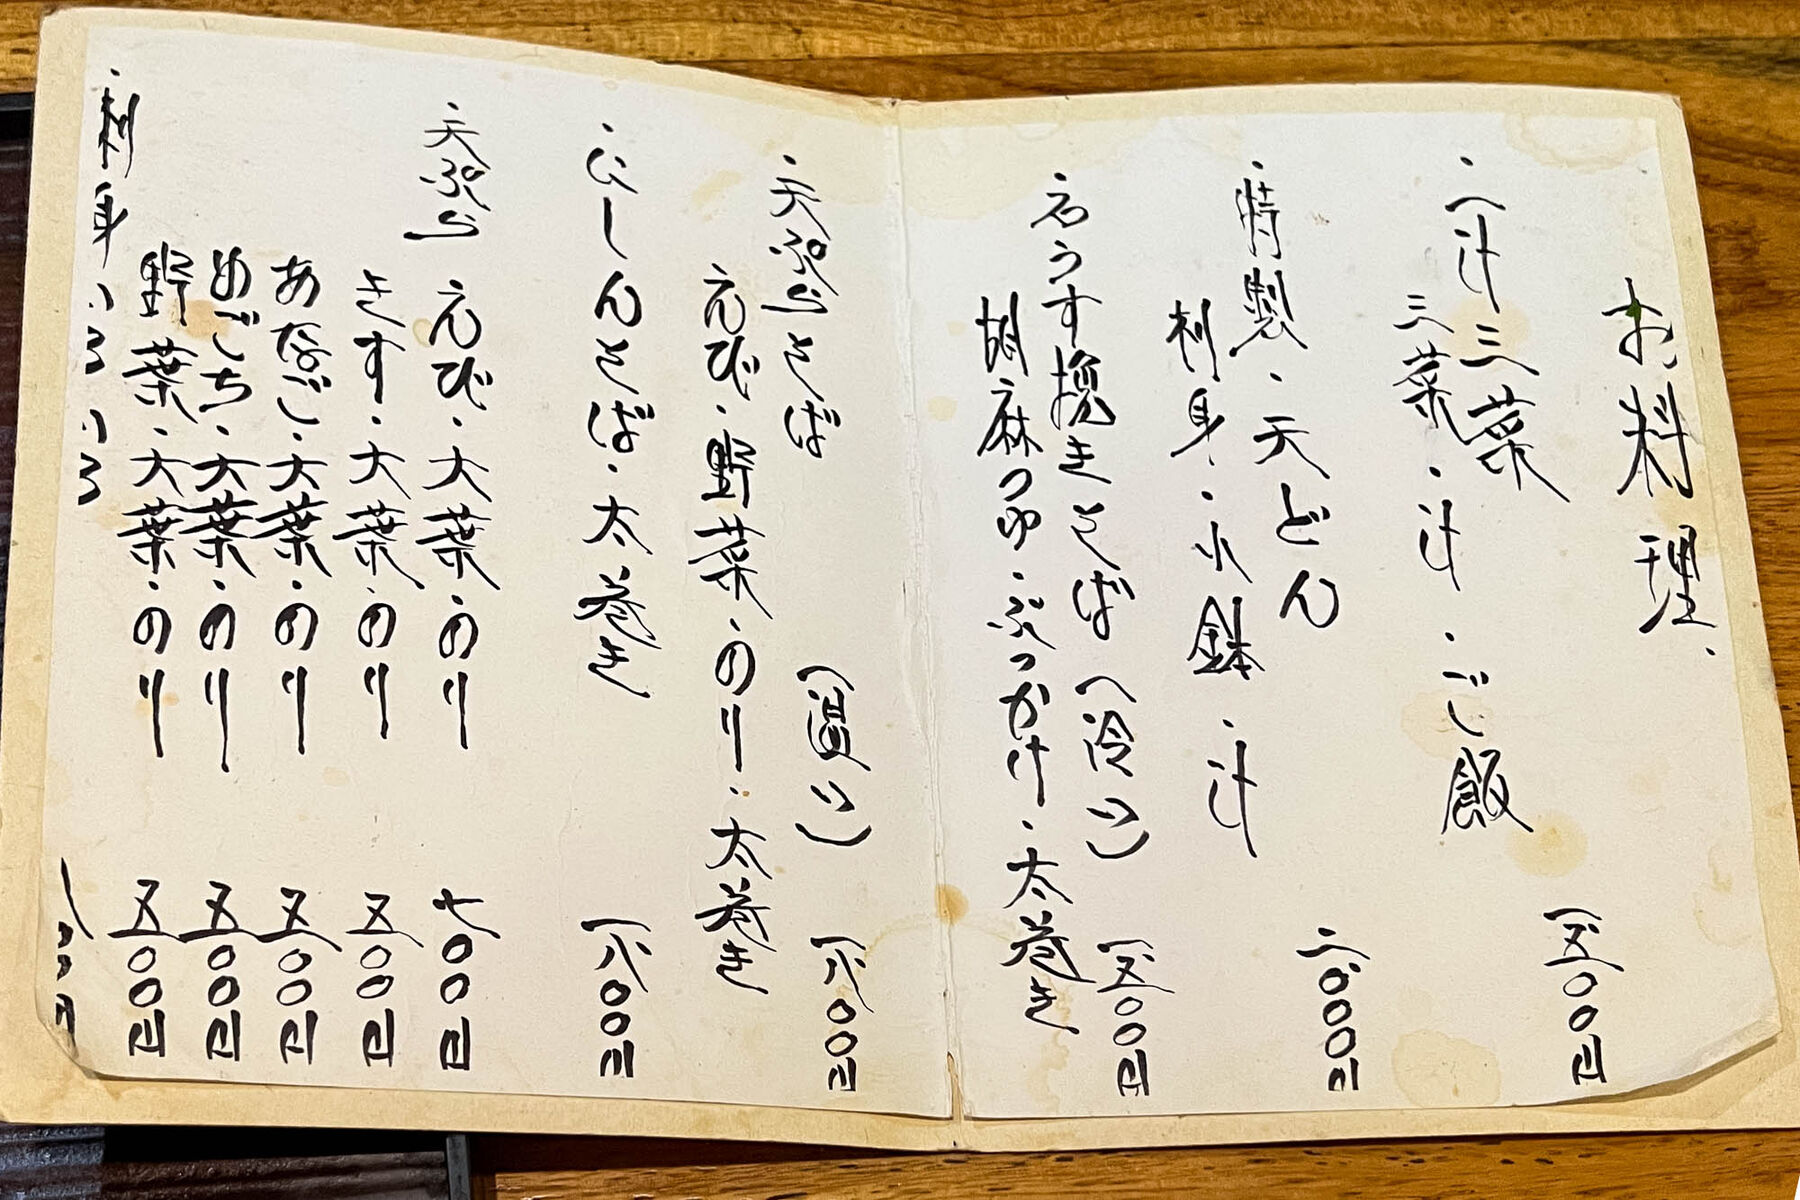 お料理、
・一汁三菜 一五〇〇円
三菜・汁・ご飯
・特製・天どん 二〇〇〇円
刺身・小鉢・汁
石うす挽きそば(冷い) 一五〇〇円
胡麻つゆ・ぶっかけ・太巻き
・天ぷらそば(温い) 一八〇〇円
えび・野菜・のり・太巻き
・にしんそば・太巻き 一八〇〇円
天ぷら えび・大葉・のり 七〇〇円
きす・大葉・のり 五〇〇円
あなご・大葉・のり 五〇〇円
めごち・大葉・のり 五〇〇円
野菜・大葉・のり 五〇〇円
・刺身いろいろ